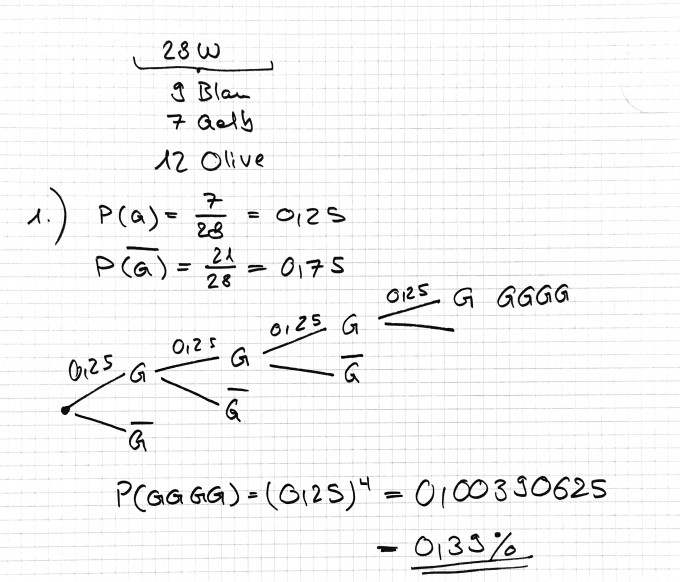 28 W
9 Blau
7 Gelb
12 Olive
1.) P(G) = 7/28 = 0,25
P(G̅) = 21/28 = 0,75
0,25 G GGGG
0,25 G
0,25 G G̅
0,25 G G̅
G̅
P(GGGG) = (0,25)⁴ = 0,00390625
= 0,39%